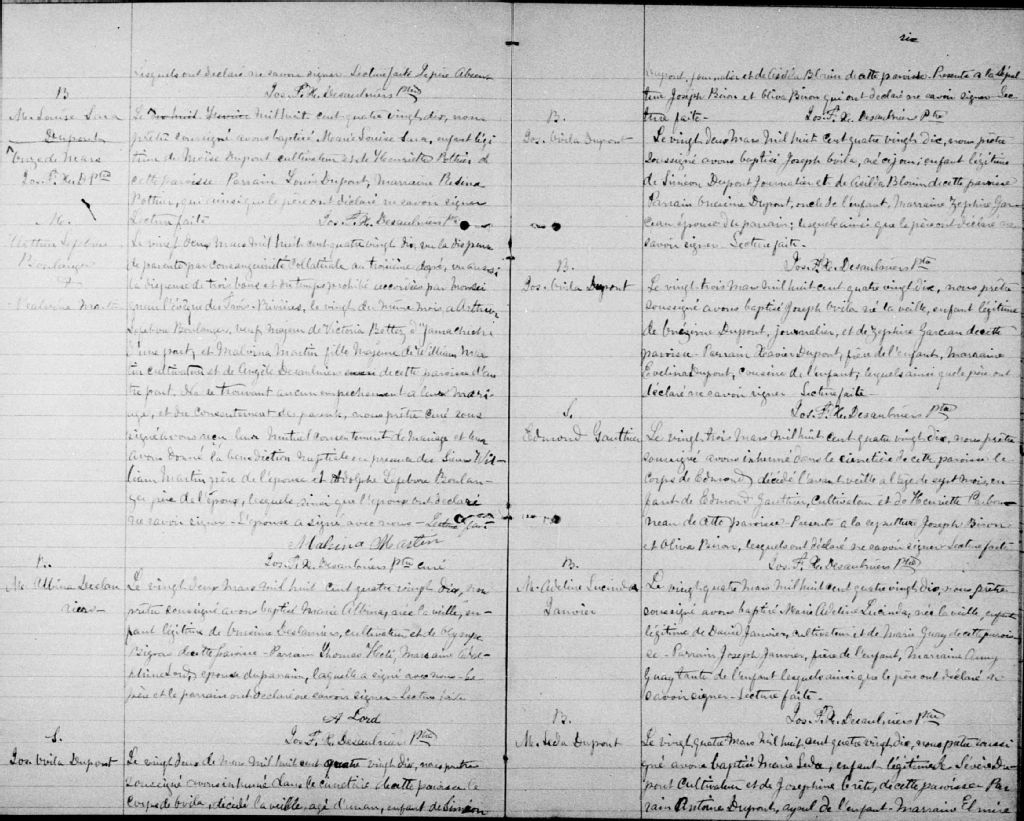 lesquels ont déclaré ne savoir signer Lecture faite le père Absent
Jos. F. X. Desaulniers Ptre
B.
M. Louise Sara
Dupont
onze de Mars
Jos. F. X. D Ptre
Le mil huit cent quatre vingt dix, nous
prêtre soussigné avons baptisé Marie Louise Sara, enfant légi
time de Moïse Dupont cultivateur et de Henriette Pothier de
cette paroisse. Parrain Louis Dupont, Marraine
Pothier, qui ainsi que le père ont déclaré ne savoir signer
Lecture faite
Jos. F. X. Desaulniers Ptre
M.
Arthur Lefebvre
Boulanger
&
Malvina Martin
Le vingt deux Mars mil huit cent quatre vingt dix, vu la dispense
de parenté par consanguinité collatérale au troisième degré, vu aussi
la dispense de trois bans et du temps prohibé accordées par Monsei
gneur l'évêque des Trois-Rivières, le vingt du même mois, à Arthur
Lefebvre Boulanger, veuf majeur de Victoria d'Yamachiche
d'une part, et Malvina Martin fille majeure de William Mar
tin cultivateur et de Angèle Desaulniers de cette paroisse d'au
tre part. Ne se trouvant aucun empêchement à leur maria
ge, et du consentement des parents, nous prêtre curé sous
signé avons reçu leur mutuel consentement de mariage et leur
avons donné la bénédiction nuptiale en présence des Sieurs Wil-
liam Martin père de l'épouse et Adolphe Lefebvre Boulan-
ger père de l'époux, lesquels ainsi que l'époux ont déclaré
ne savoir signer - L'épouse a signé avec nous - Lecture faite
Malvina Martin
Jos. F. X. Desaulniers Ptre curé
B.
M. Albina Deslau
riers
Le vingt deux Mars mil huit cent quatre vingt dix, nous
prêtre soussigné avons baptisé Marie Albina, née la veille, en-
fant légitime de Onésime Deslauriers, cultivateur et de
de cette paroisse - Parrain Thomas Marraine
Lord, épouse du parrain, laquelle a signé avec nous - Le
père et le parrain ont déclaré ne savoir signer - Lecture faite
A Lord
Jos. F. X. Desaulniers Ptre
S.
Jos. Ovila Dupont
Le vingt deux de Mars mil huit cent quatre vingt dix, nous prêtre
soussigné avons inhumé dans le cimetière de cette paroisse le
corps de Ovila, décédé la veille, agé d'un an, enfant de Siméon
six
Dupont, journalier et de Asilda Blouin de cette paroisse. Présents à la sépul
ture Joseph Biron et Oliva Biron qui ont déclaré ne savoir signer Lec
ture faite -
Jos. F. X. Desaulniers Ptre
B.
Jos. Ovila Dupont
Le vingt deux Mars mil huit cent quatre vingt dix, nous prêtre
soussigné avons baptisé Joseph Ovila, né ce jour, enfant légitime
de Siméon Dupont Journalier et de Asilda Blouin de cette paroisse
Parrain Onésime Dupont, oncle de l'enfant, Marraine Zéphire Gar-
ceau épouse du parrain; lesquels ainsi que le père ont déclaré ne
savoir signer - Lecture faite -
Jos. F. X. Desaulniers Ptre
B.
Jos. Ovila Dupont
Le vingt trois Mars mil huit cent quatre vingt dix, nous prêtre
soussigné avons baptisé Joseph Ovila né la veille, enfant légitime
de Onésime Dupont, journalier, et de Zéphire Garceau de cette
paroisse - Parrain Xavier Dupont, frère de l'enfant, Marraine
Evelina Dupont, cousine de l'enfant, lesquels ainsi que le père ont
déclaré ne savoir signer Lecture faite -
Jos. F. X. Desaulniers Ptre
S.
Edmond Gauthier
Le vingt trois Mars mil huit cent quatre vingt dix, nous prêtre
soussigné avons inhumé dans le cimetière de cette paroisse le
corps de Edmond, décédé l'avant veille à l'âge de sept mois, en-
fant de Edmond Gauthier, Cultivateur et de Henriette Carbon-
neau de cette paroisse - Présents à la sépulture Joseph Biron
et Oliva Biron, lesquels ont déclaré ne savoir signer Lecture faite
Jos. F. X. Desaulniers Ptre
B.
M. Adeline Lucinda
Janvier
Le vingt quatre Mars mil huit cent quatre vingt dix, nous prêtre
soussigné avons baptisé Marie Adeline Lucinda, née la veille, enfant
légitime de David Janvier, cultivateur et de Marie Guay de cette parois
se - Parrain Joseph Janvier, frère de l'enfant, Marraine Anny
Guay tante de l'enfant lesquels ainsi que le père ont déclaré ne
savoir signer - Lecture faite -
Jos. F. X. Desaulniers Ptre
B.
M. Léda Dupont
Le vingt quatre Mars mil huit cent quatre vingt dix, nous prêtre soussi
gné avons baptisé Marie Léda, enfant légitime de Sévère Du-
pont Cultivateur et de Josephine Crête, de cette paroisse - Par
rain Antoine Dupont, ayeul de l'enfant - Marraine Elmire